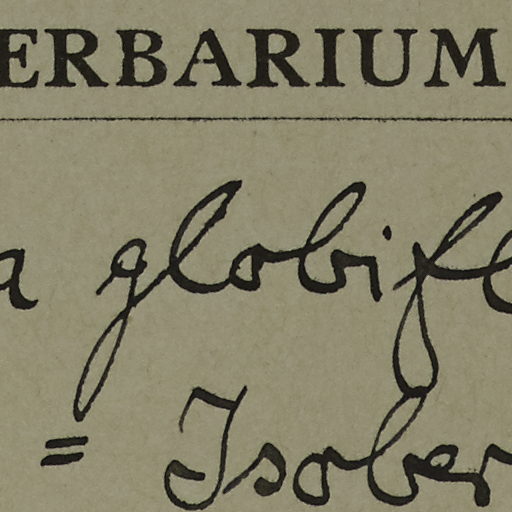 ERBARIUM
a globife
= Isober